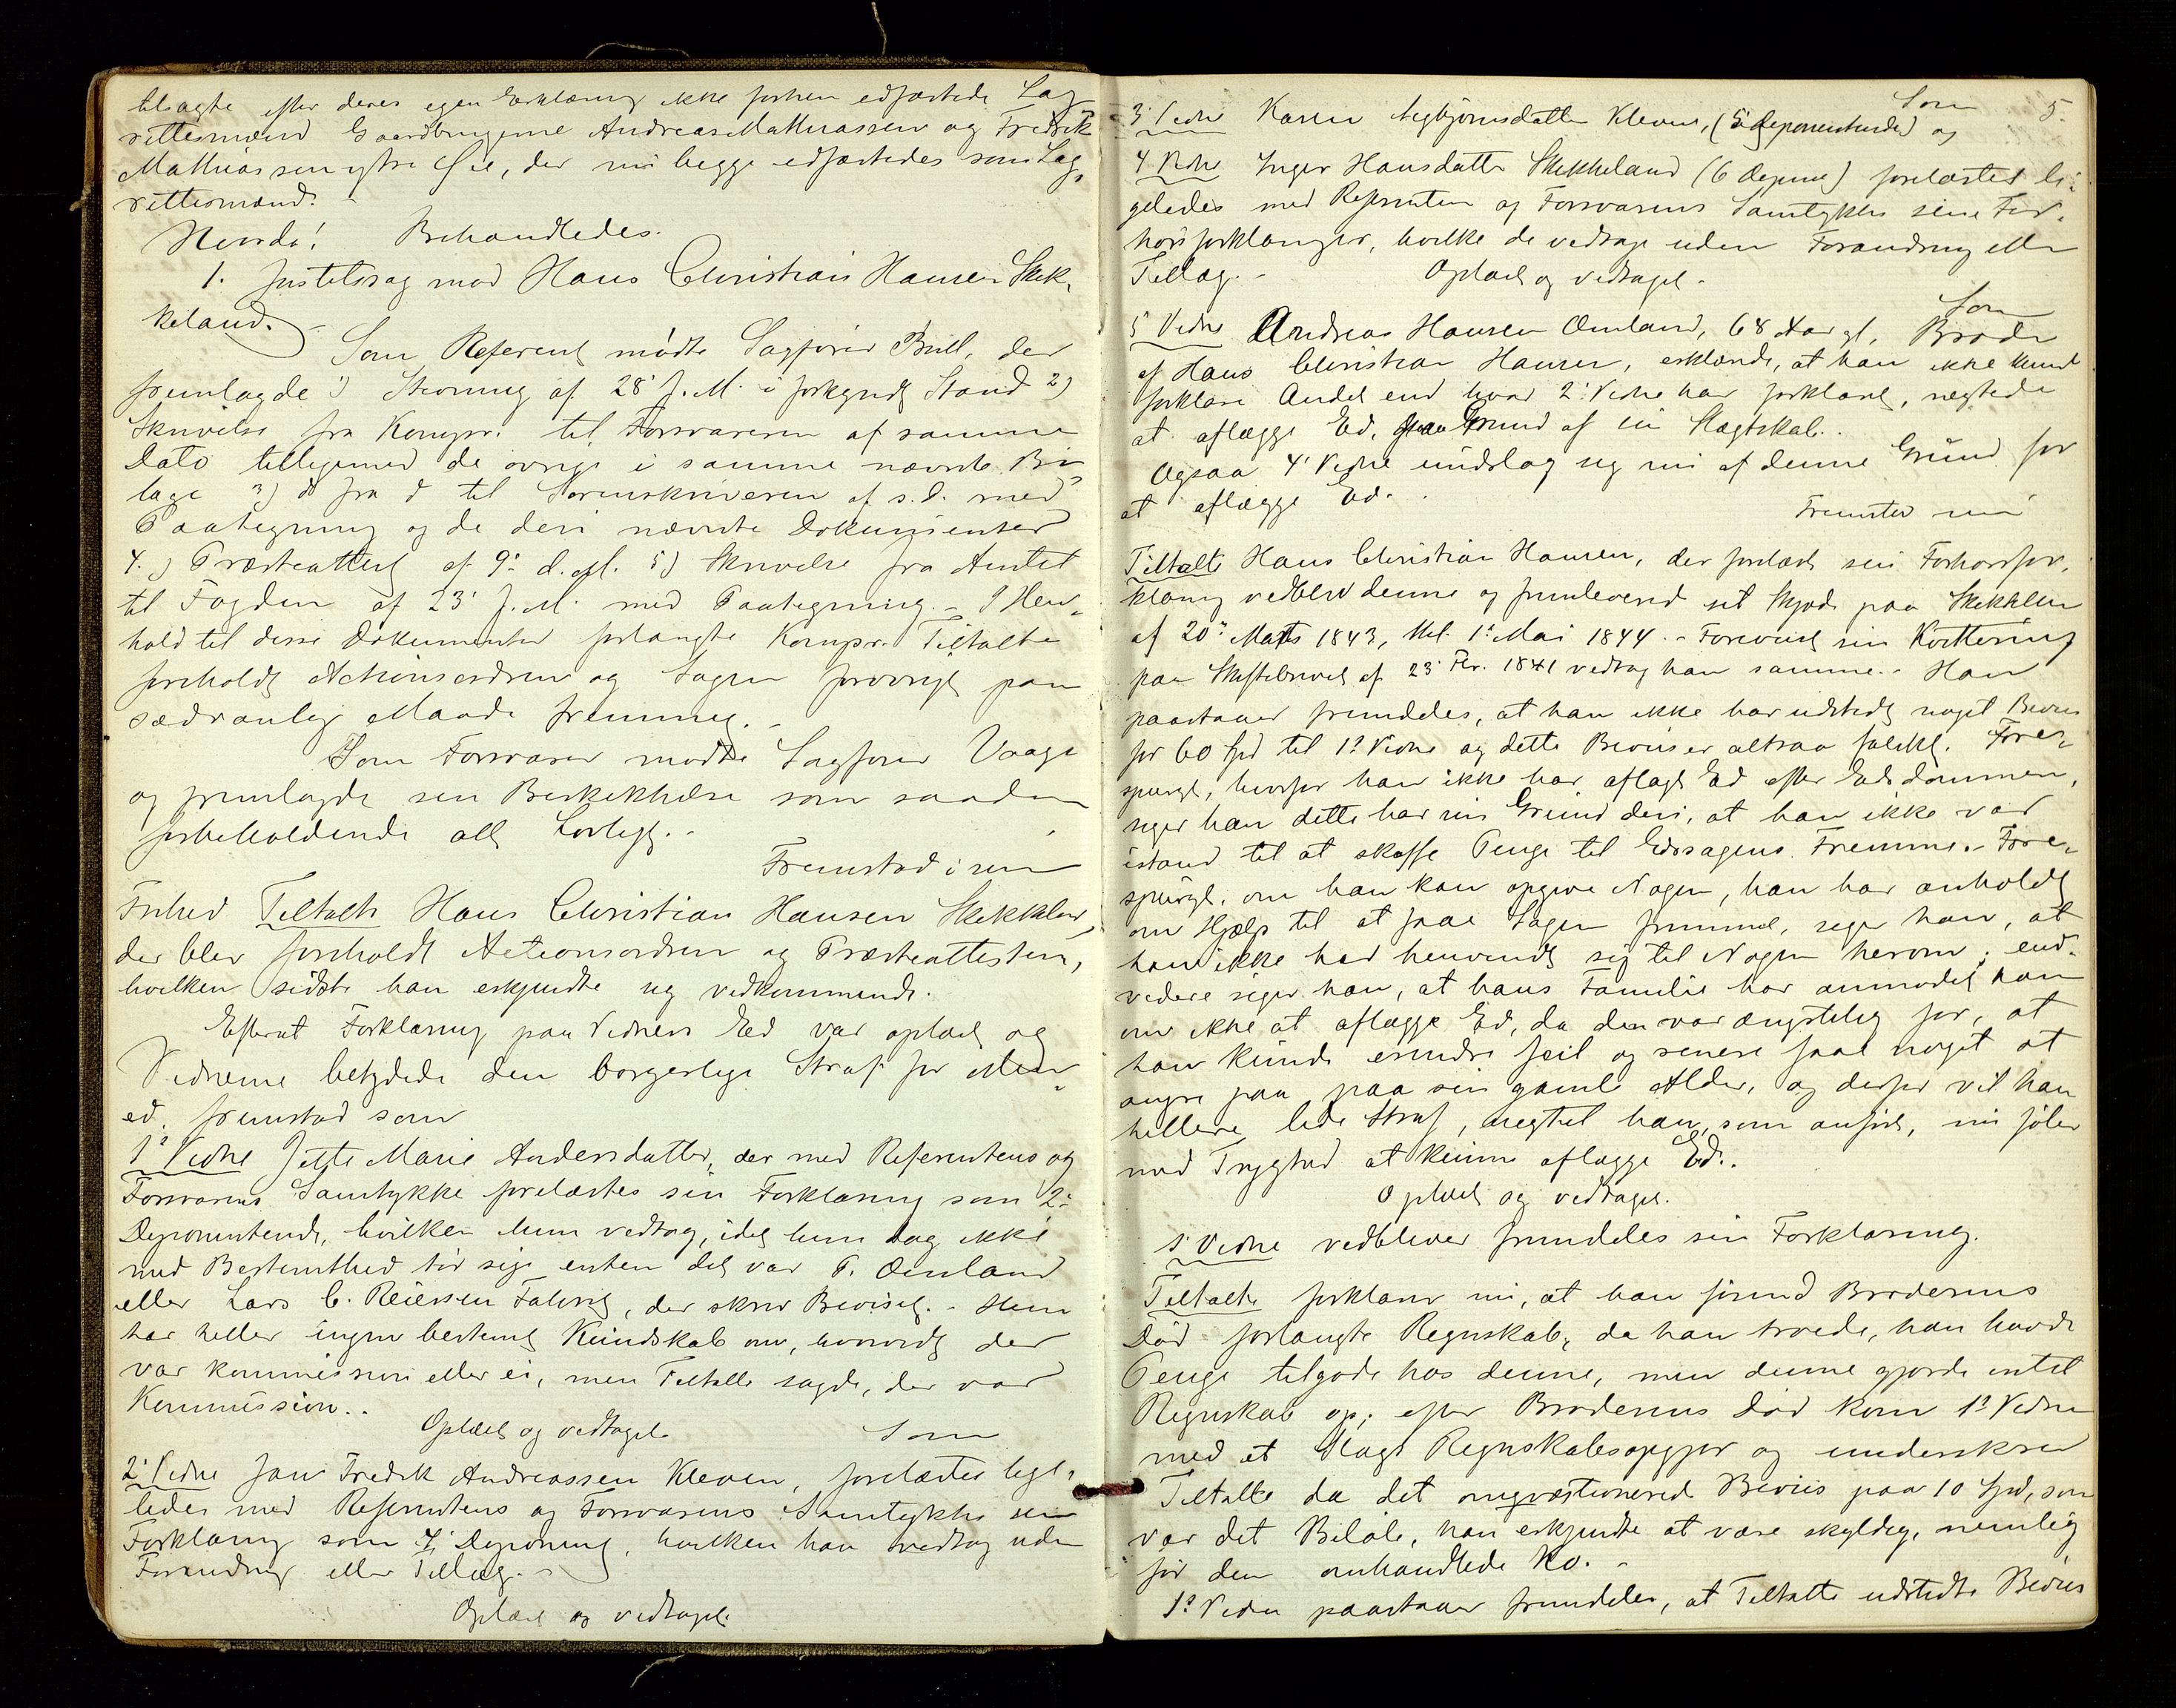 tilsagte efter deres egen Erklæring ikke forhen edfæstede Lag
rettesmænd Gaardbrugerne Andreas Mathiassen og Fredrik
Mathiassen ytre Øie, der nu begge edfæstedes som Lag,
rettesmænd.
Hvorda! Behandledes.
1. Justitssag mod Hans Christian Hansen Skek,
keland.
Som Referent mødte Sagfører Bull, der
fremlagde 1) Stevning af 28' f. M. i forkyndt Stand 2)
Skrivelse fra Kompr. til Forsvareren af samme
Dato tilligemed de øvrige i samme nævnte Bi
lage 3) d° fra d° til Sorenskriveren af s. d. med
Paategning og de deri nævnte Dokumenter
4.) Præsteattest af 9' d. M. 5) Skrivelse fra Amtet
til Fogden af 23' f. M. med Paategning. - I Hen,
hold til disse Dokumenter forlangte Kompr. Tiltalte
foreholdt Actionsordren og Sagen forøvrigt paa
sædvanlig Maade fremmet. -
Som Forsvarer mødte Sagfører Vaage
og fremlagde sin Beskikkelse som saadan
forbeholdende alt Lovligt. -
Fremstod i sin
Frihed Tiltalte Hans Christian Hansen Skekkeland,
der blev foreholdt Actionsordren og Præsteattesten,
hvilken sidste han erkjendte sig vedkommende.
Efterat Forklaring paa Vidners Ed var oplæst og
Vidnerne betydede den borgerlige Straf for Men,
ed, fremstod som
1' Vidne Jette Marie Andersdatter, der med Referentens og
Forsvarens Samtykke forelæstes sin Forklaring som 2'
Deponentinde, hvilken hun vedtog, idet hun dog ikke
med Bestemthed tør sige enten det var P. Omland
eller Lars C. Reiersen Fabret, der skrev Beviset. - Hun
har heller ingen bestemt Kundskab om, hvorvidt der
var Kommission eller ei, men Tiltalte sagde, der var
Kommission..
Oplæst og vedtaget. Som
2' Vidne Jan Fredrik Andreassen Kleven, forelæstes lige,
ledes med Referentens og Forsvarens Samtykke sin
Forklaring som 7' Deponent, hvilken han vedtog uden
Forandring eller Tillæg. -
Oplæst og vedtaget.
Som 5.
3' Vidne Karen Asgbjørnsdatter Kleven, (5' Deponentinde) og
4 Vidne Inger Hansdatter Skekkeland (6 Depone) forelæstes li,
geledes med Referenten og Forsvarens Samtykke sine For,
hørsforklaringer, hvilke de vedtage uden Forandring eller
Tillæg. - Oplæst og vedtaget. -
Som
5 Vidne Andreas Hansen Omland, 68 Aar gl, Broder
af Hans Christian Hansen, erklærede, at han ikke kunde
forklare Andet end hvad 2' Vidne har forklaret, nægtede
at aflægge Ed, paa Grund af sin Slægtskab..
Ogsaa 4' Vidne undslog sig nu af denne Grund for
at aflægge Ed. .
Fremstod nu
Tiltalte Hans Christian Hansen, der forelæst sin Forhørsfor,
klaring vedblev denne og fremleverede sit Skjøde paa Skekkeland
af 20' Marts 1843, thl. 1' Mai 1844. - Forevist sin Kvittering
paa Skiftebrevet af 23' Fbr. 1841 vedtog han samme. - Han
paastaaer fremdeles, at han ikke har udstedt noget Bevis
for 60 Spd til 1' Vidne og dette Bevis er altsaa falskt. Fore,
spurgt, hvorfor han ikke har aflagt Ed efter Edsdommen,
siger han dette har sin Grund deri, at han ikke var
istand til at skaffe Penge til Edssagens Fremme. - Fore,
spurgt, om han kan opgive Nogen, han har anholdt
om Hjælp til at faae Sagen fremmet, siger han, at
han ikke har henvendt sig til Nogen herom; end,
videre siger han, at hans Familie har anmodet ham
om ikke at aflægge Ed, da den var ængstelig for, at
han kunde erindre feil og senere faae noget at
angre paa paa sin gamle Alder, og derfor vil han
hellere lide Straf, uagtet han, som anført, nu føler
med Tryghed at kunne aflægge Ed..
Oplæst og vedtaget.
1' Vidne vedbliver fremdeles sin Forklaring.
Tiltalte forklarer nu, at han førend Broderens
Død forlangte Regnskab, da han troede, han havde
Penge tilgode hos denne, men denne gjorde intet
Regnskab op; efter Broderens Død kom 1' Vidne
med et Slags Regnskabsopgjør og underskrev
Tiltalte da det omqvæstionerede Bevis paa 10 Spd, som
var det Beløb, han erkjendte at være skyldig, nemlig
for den omhandlede Ko. -
1' Vidne paastaaer fremdeles, at Tiltalte udstedte Bevis